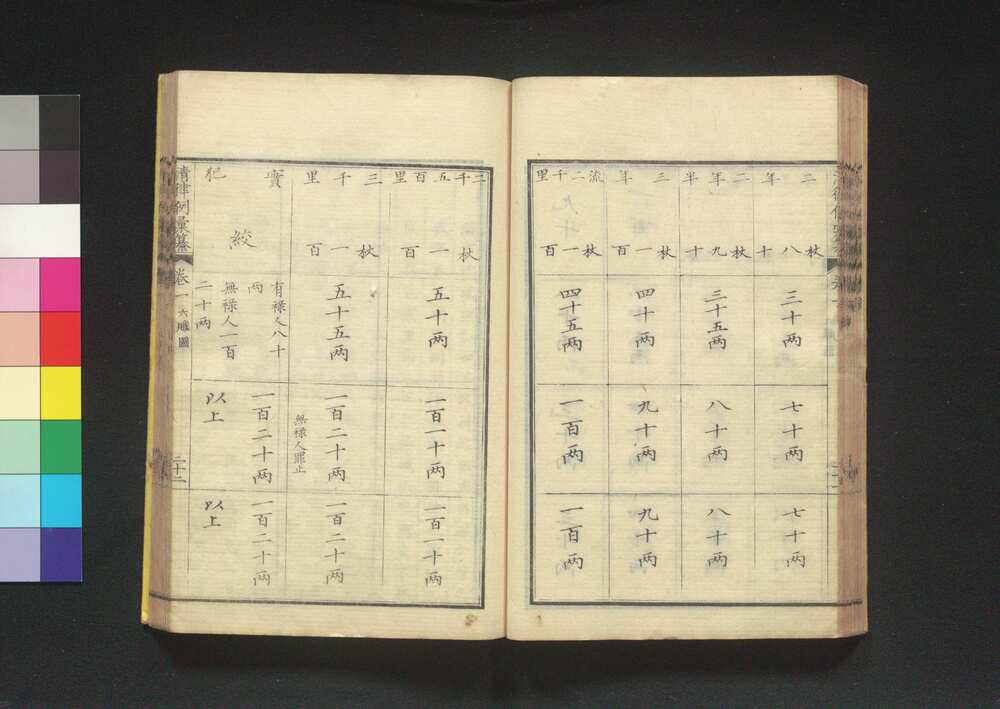 二年
杖八十
三十两
七十两
七十两
二年半
杖九十
三十五两
八十两
八十两
三年
杖一百
四十两
九十两
九十两
流二千里
杖一百
四十五两
一百两
一百两
二千五百里
杖一百
五十两
一百一十两
一百一十两
三千里
杖一百
五十五两
一百二十两
無禄人罪止
一百二十两
實犯
絞
有禄人八十
两
無禄人一百
二十两
一百二十两
以上
一百二十两
以上
清律例彙纂
卷一
六贓圖